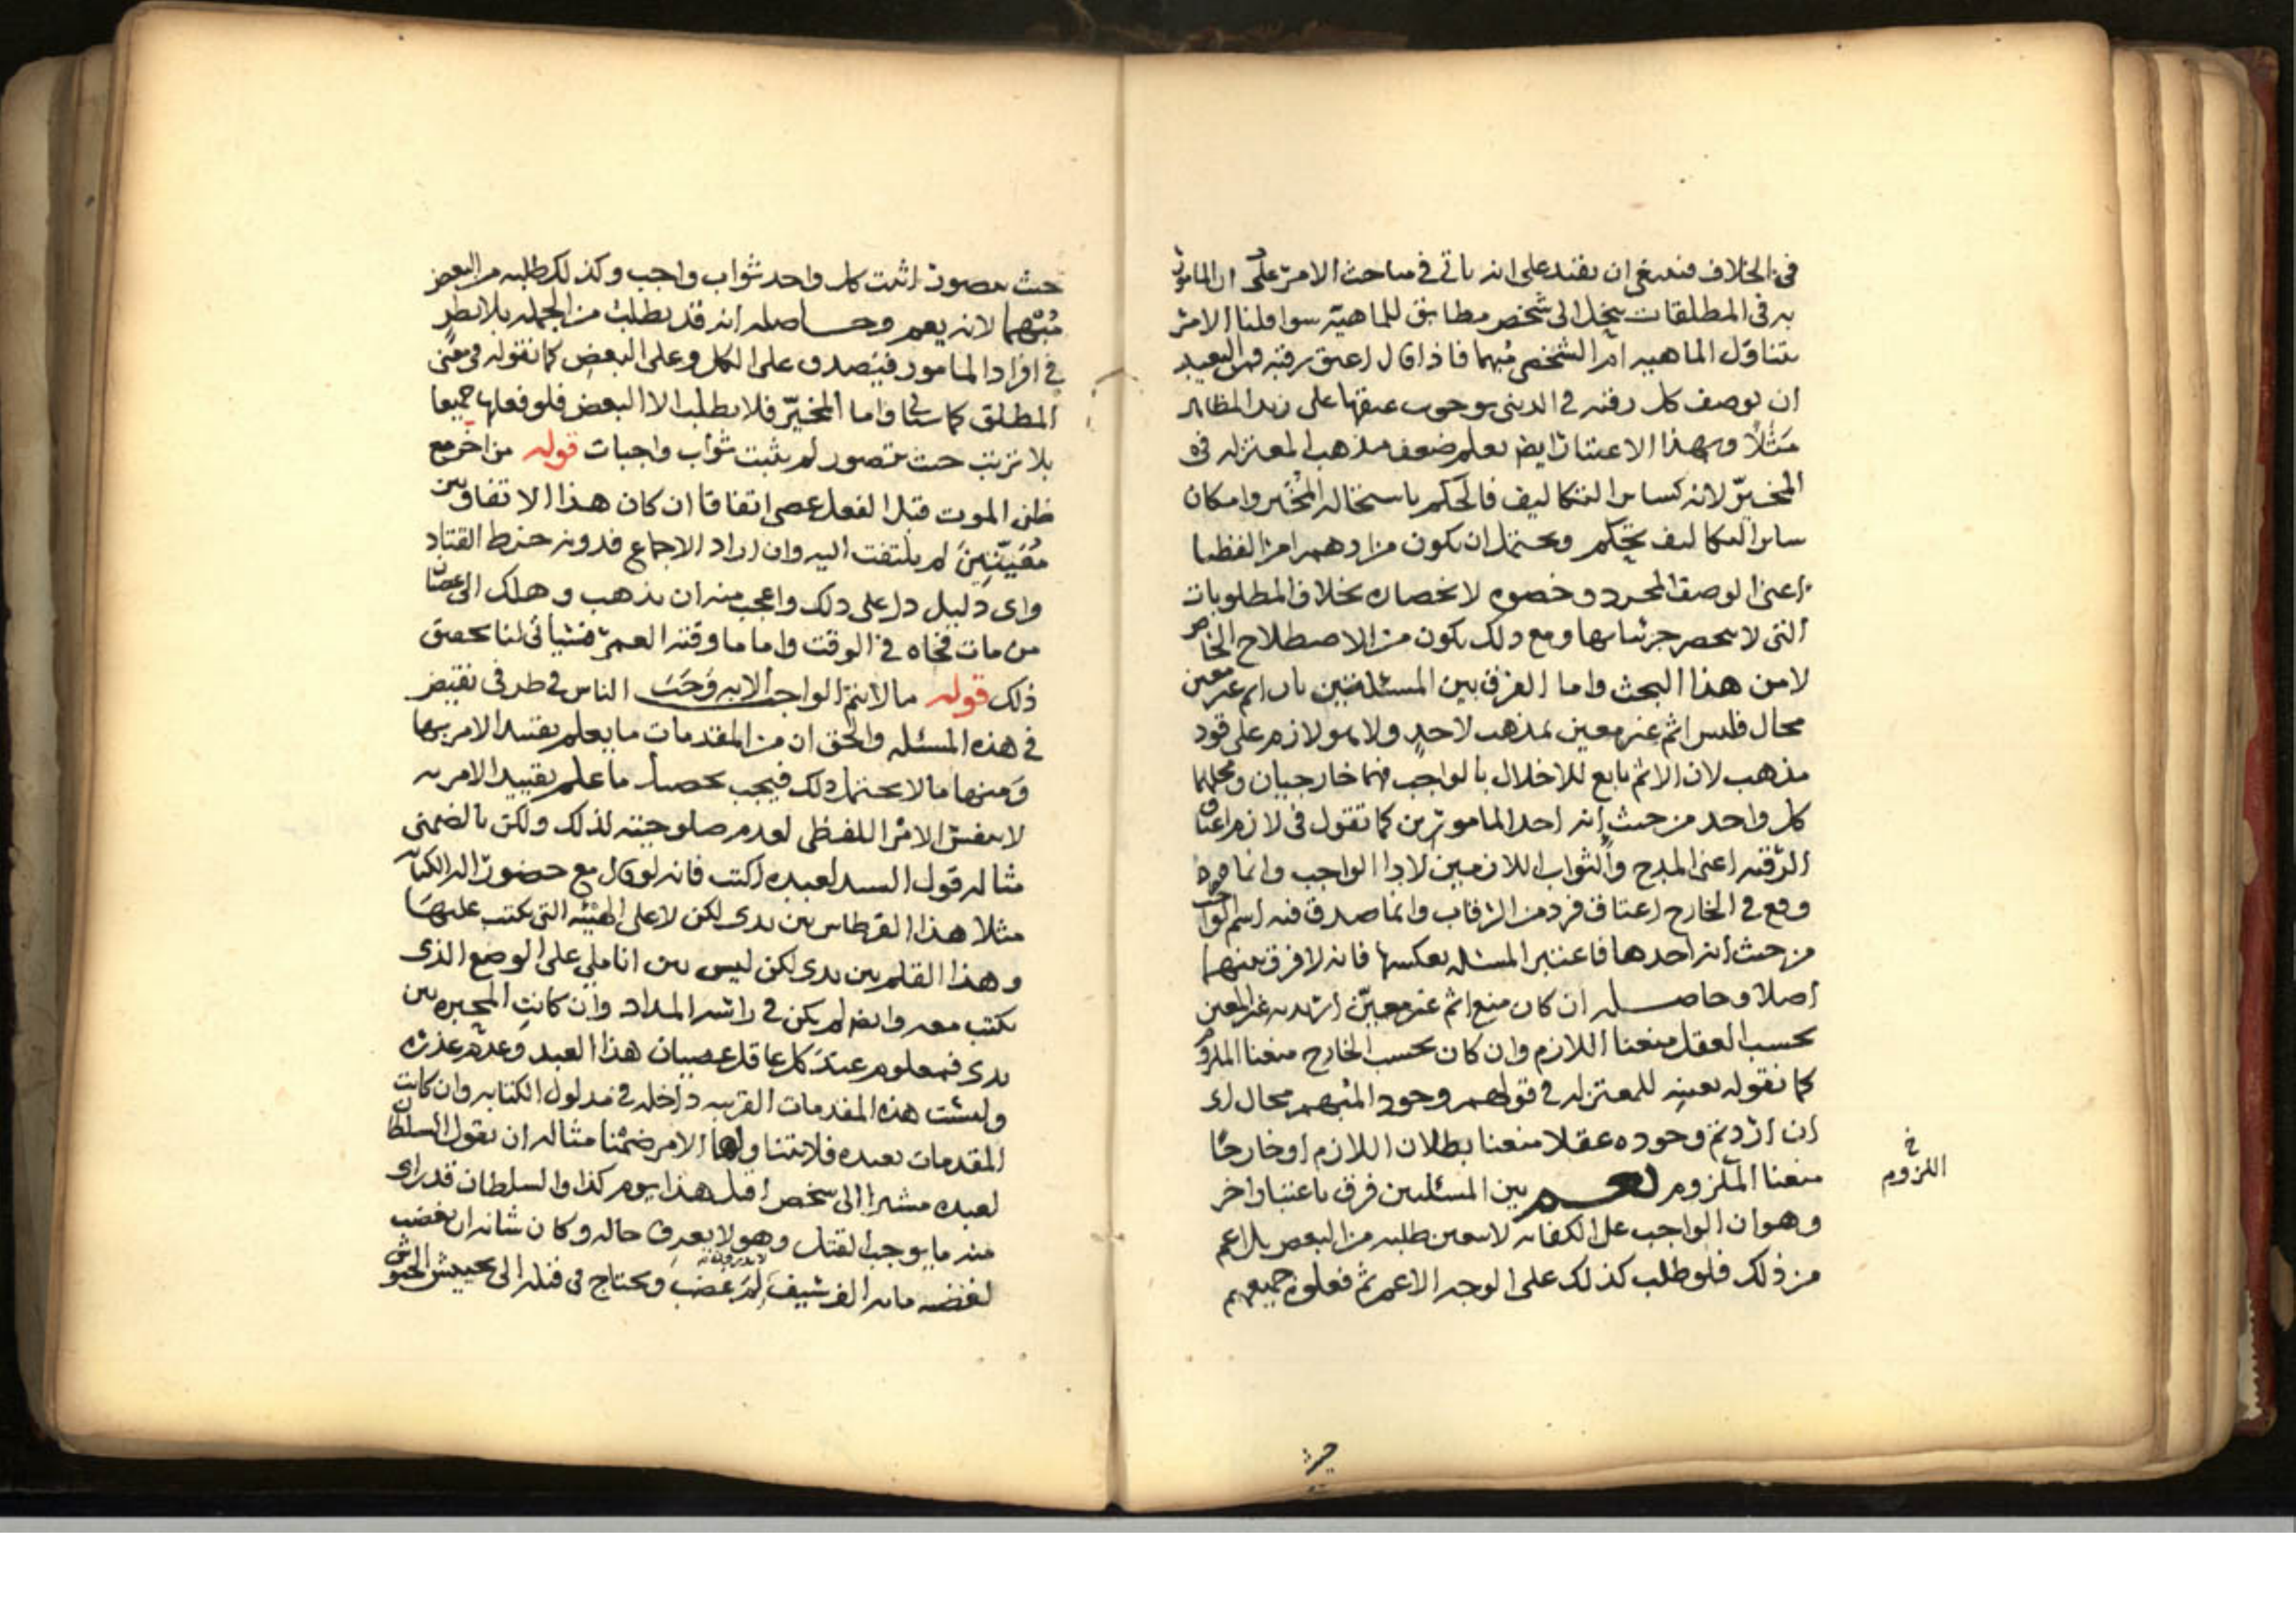 في الخلاف فينبغي ان يفتد على انه ياتي في مباحث الامر على ان المامور
به في المطلقات ينحل الى شخص مطابق للماهية سوا قلنا الامر
يتناول الماهيه ام الشخص مبهما فاذا قال اعتق رقبه فمن البعيد
ان يوصف كل رقبه في الدنيا بوجوب عتقها على زيد المظاهر
مثلا وبهذا الاعتبار ايضا يعلم ضعف مذهب المعتزله في
المخير لانه كساير التكاليف فالحكم باستحاله المخير وامكان
ساير التكاليف تحكم ويحتمل ان يكون مرادهم امرا لفظيا
اعني الوصف المجرد وخصوه لانحصاره بخلاف المطلوبات
التي لا تنحصر جزئياتها ومع ذلك يكون من الاصطلاح الخاص
لا من هذا البحث واما الفرق بين المسئلتين بان اثم غير معين
محال فليس اثم غير معين بمذهب لاحد ولا هو لازم على قود
مذهب لان الاثم تابع للاخلال بالواجب فهما خارجيان ومحلهما
كل واحد من حيث انه احد المامورين كما تقول في لازم اعتاق
الرقبه اعني المدح والثواب اللازمين لادا الواجب وانما هو
وقع في الخارج اعتاق فرد من الرقاب وانما صدق فيه اسم الواجب
من حيث انه احدها فاعتبر المسئله بعكسها فانه لا فرق بينهما
اصلا وحاصله ان كان منع اثم غير معين اريد به غير المعين
بحسب العقل منعنا اللازم وان كان بحسب الخارج منعنا الملزوم
كما نقوله بعينه للمعتزله في قولهم وجود المبهم محال اي
ان اردتم وجوده عقلا منعنا بطلان اللازم او خارجا
منعنا الملزوم نعم بين المسئلتين فرق باعتبار اخر
وهو ان الواجب على الكفايه لا يتعين طلبه من البعض بل اعم
من ذلك فلو طلب كذلك على الوجه الاعم ثم فعلوه جميعهم
خ
اللزوم
حيث
حيث يتصور اثيب كل واحد ثواب واجب وكذلك طلبه من البعض
مبهما لانه يعم وحاصله انه قد يطلب من الجمله بلا نظر
في افراد المامور فيصدق على الكل وعلى البعض كما نقوله في معنى
المطلق كما سياتي واما المخير فلا يطلب الا البعض فلو فعلها جميعا
بلا ترتيب حيث يتصور لم يثبت ثواب واجبات قوله من اخر مع
ظن الموت قبل الفعل عصى اتفاقا ان كان هذا الاتفاق بين
معينين لم يلتفت اليه وان اراد الاجماع فدونه خرط القتاد
واي دليل دل على ذلك واعجب منه ان يذهب وهلك الى عصيان
من مات فجاه في الوقت واما ما وقته العمر فسياتي لنا تحقيق
ذلك قوله ما لا يتم الواجب الا به وجب الناس في طرفي نقيض
في هذه المسئله والحق ان من المقدمات ما يعلم تقييد الامر بها
ومنها ما لا يحتمل ذلك فيجب تحصيل ما علم تقييد الامر به
لا بنفس الامر اللفظي لعدم صلوحيته لذلك ولكن بالضمني
مثاله قول السيد لعبده اكتب فانه لو قال مع حضور اله الكتابه
مثلا هذا القرطاس بين يدي لكن لا على الهيئه التي يكتب عليها
وهذا القلم بين يدي لكن ليس بين اناملي على الوضع الذي
يكتب معه وايضا لم يكن في راسه المداد وان كانت المحبره بين
يدي فمعلوم عند كل عاقل عصيان هذا العبد وعدم عذره
وليست هذه المقدمات القريبه داخله في مدلول الكتابه وان كانت
المقدمات بعيده فلا يتناولها الامر ضمنا مثاله ان يقول السلطان
لعبده مشيرا الى شخص اقتل هذا يوم كذا والسلطان قد راى
منه ما يوجب القتل وهو لا يعرف حاله وكان شانه ان يغضب
لغضبه مايه الف سيف لم غضب ويحتاج في قتله الى تجييش الجيوش